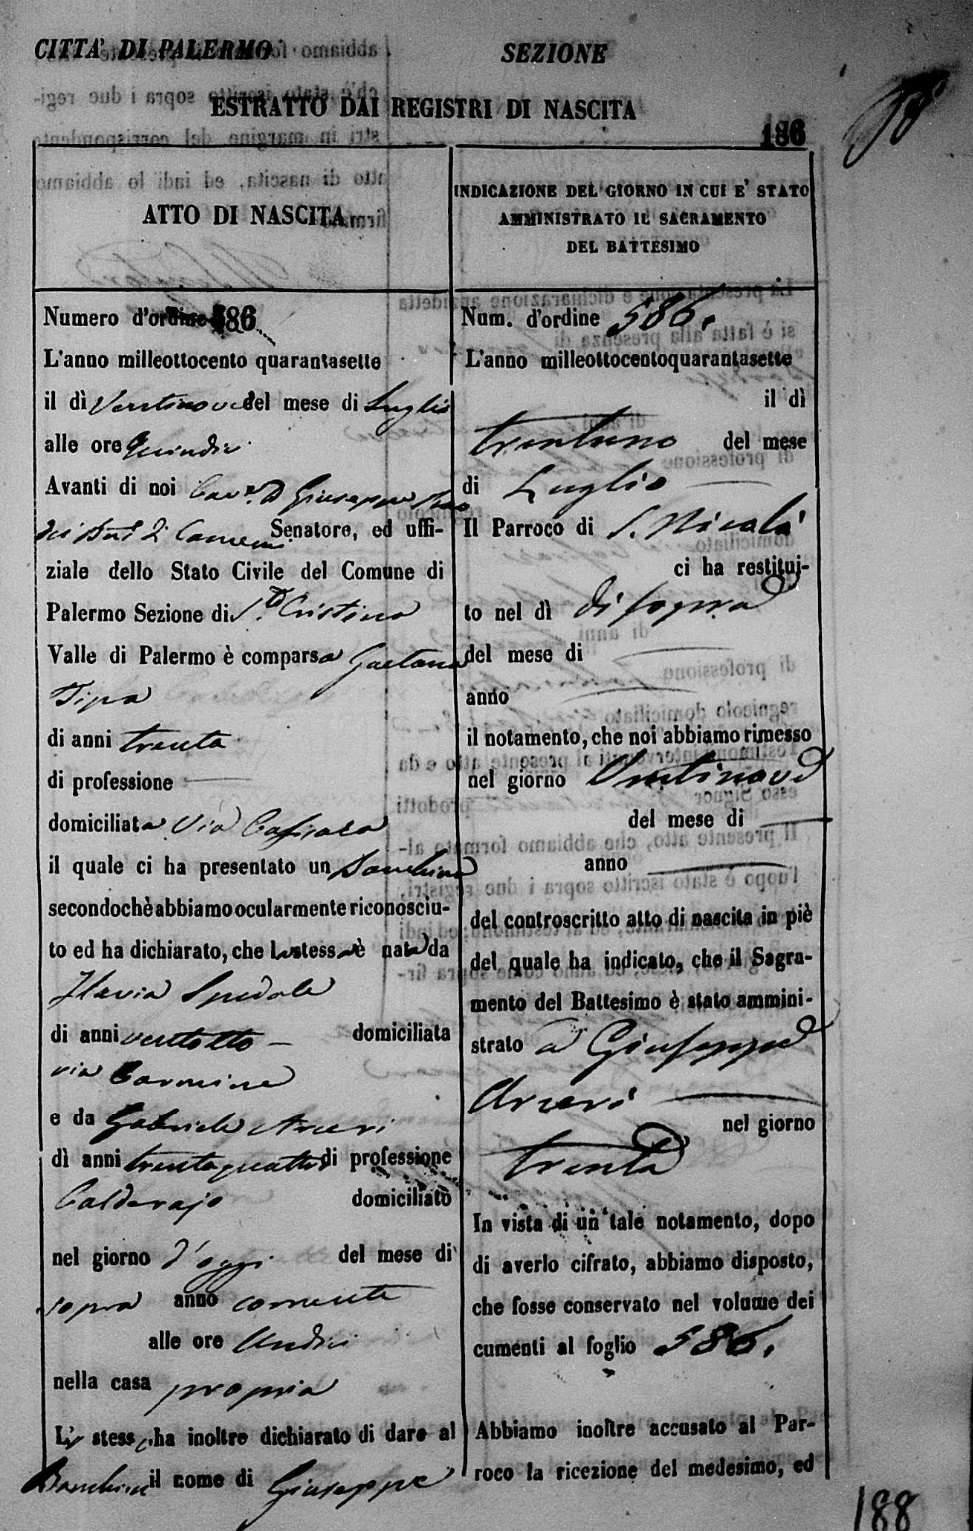 CITTA' DI PALERMO
SEZIONE
ESTRATTO DAI REGISTRI DI NASCITA
186
ATTO DI NASCITA
Numero d'ordine 586
L'anno milleottocento quarantasette
il dì Ventinove del mese di Luglio
alle ore Quindici
Avanti di noi Cav.r D. Giuseppe
Senatore, ed uffi-
ziale dello Stato Civile del Comune di
Palermo Sezione di S.ta Cristina
Valle di Palermo è comparsa Gaetana
Tipa
di anni trenta
di professione
domiciliata Via
il quale ci ha presentato un Bambino
secondochè abbiamo ocularmente riconosciu-
to ed ha dichiarato, che lo stesso è nato da
Flavia Spedale
di anni ventotto domiciliata
via Carmine
e da Gabriele Arceri
dì anni trentaquattro di professione
Calderajo domiciliato
nel giorno d'oggi del mese di
sopra anno corrente
alle ore Undici
nella casa propria
L stess ha inoltre dichiarato di dare al
Bambino il nome di Giuseppe
INDICAZIONE DEL GIORNO IN CUI E' STATO
AMMINISTRATO IL SACRAMENTO
DEL BATTESIMO
Num. d'ordine 586.
L'anno milleottocentoquarantasette
il dì
trentuno del mese
di Luglio
Il Parroco di S. Nicolà
ci ha restitui-
to nel dì di sopra
del mese di
anno
il notamento, che noi abbiamo rimesso
nel giorno Ventinove
del mese di
anno
del controscritto atto di nascita in piè
del quale ha indicato, che il Sagra-
mento del Battesimo è stato ammini-
strato a Giuseppe
Arceri
nel giorno
trenta
In vista di un tale notamento, dopo
di averlo cifrato, abbiamo disposto,
che fosse conservato nel volume dei
cumenti al foglio 586.
Abbiamo inoltre accusato al Par-
roco la ricezione del medesimo, ed
188